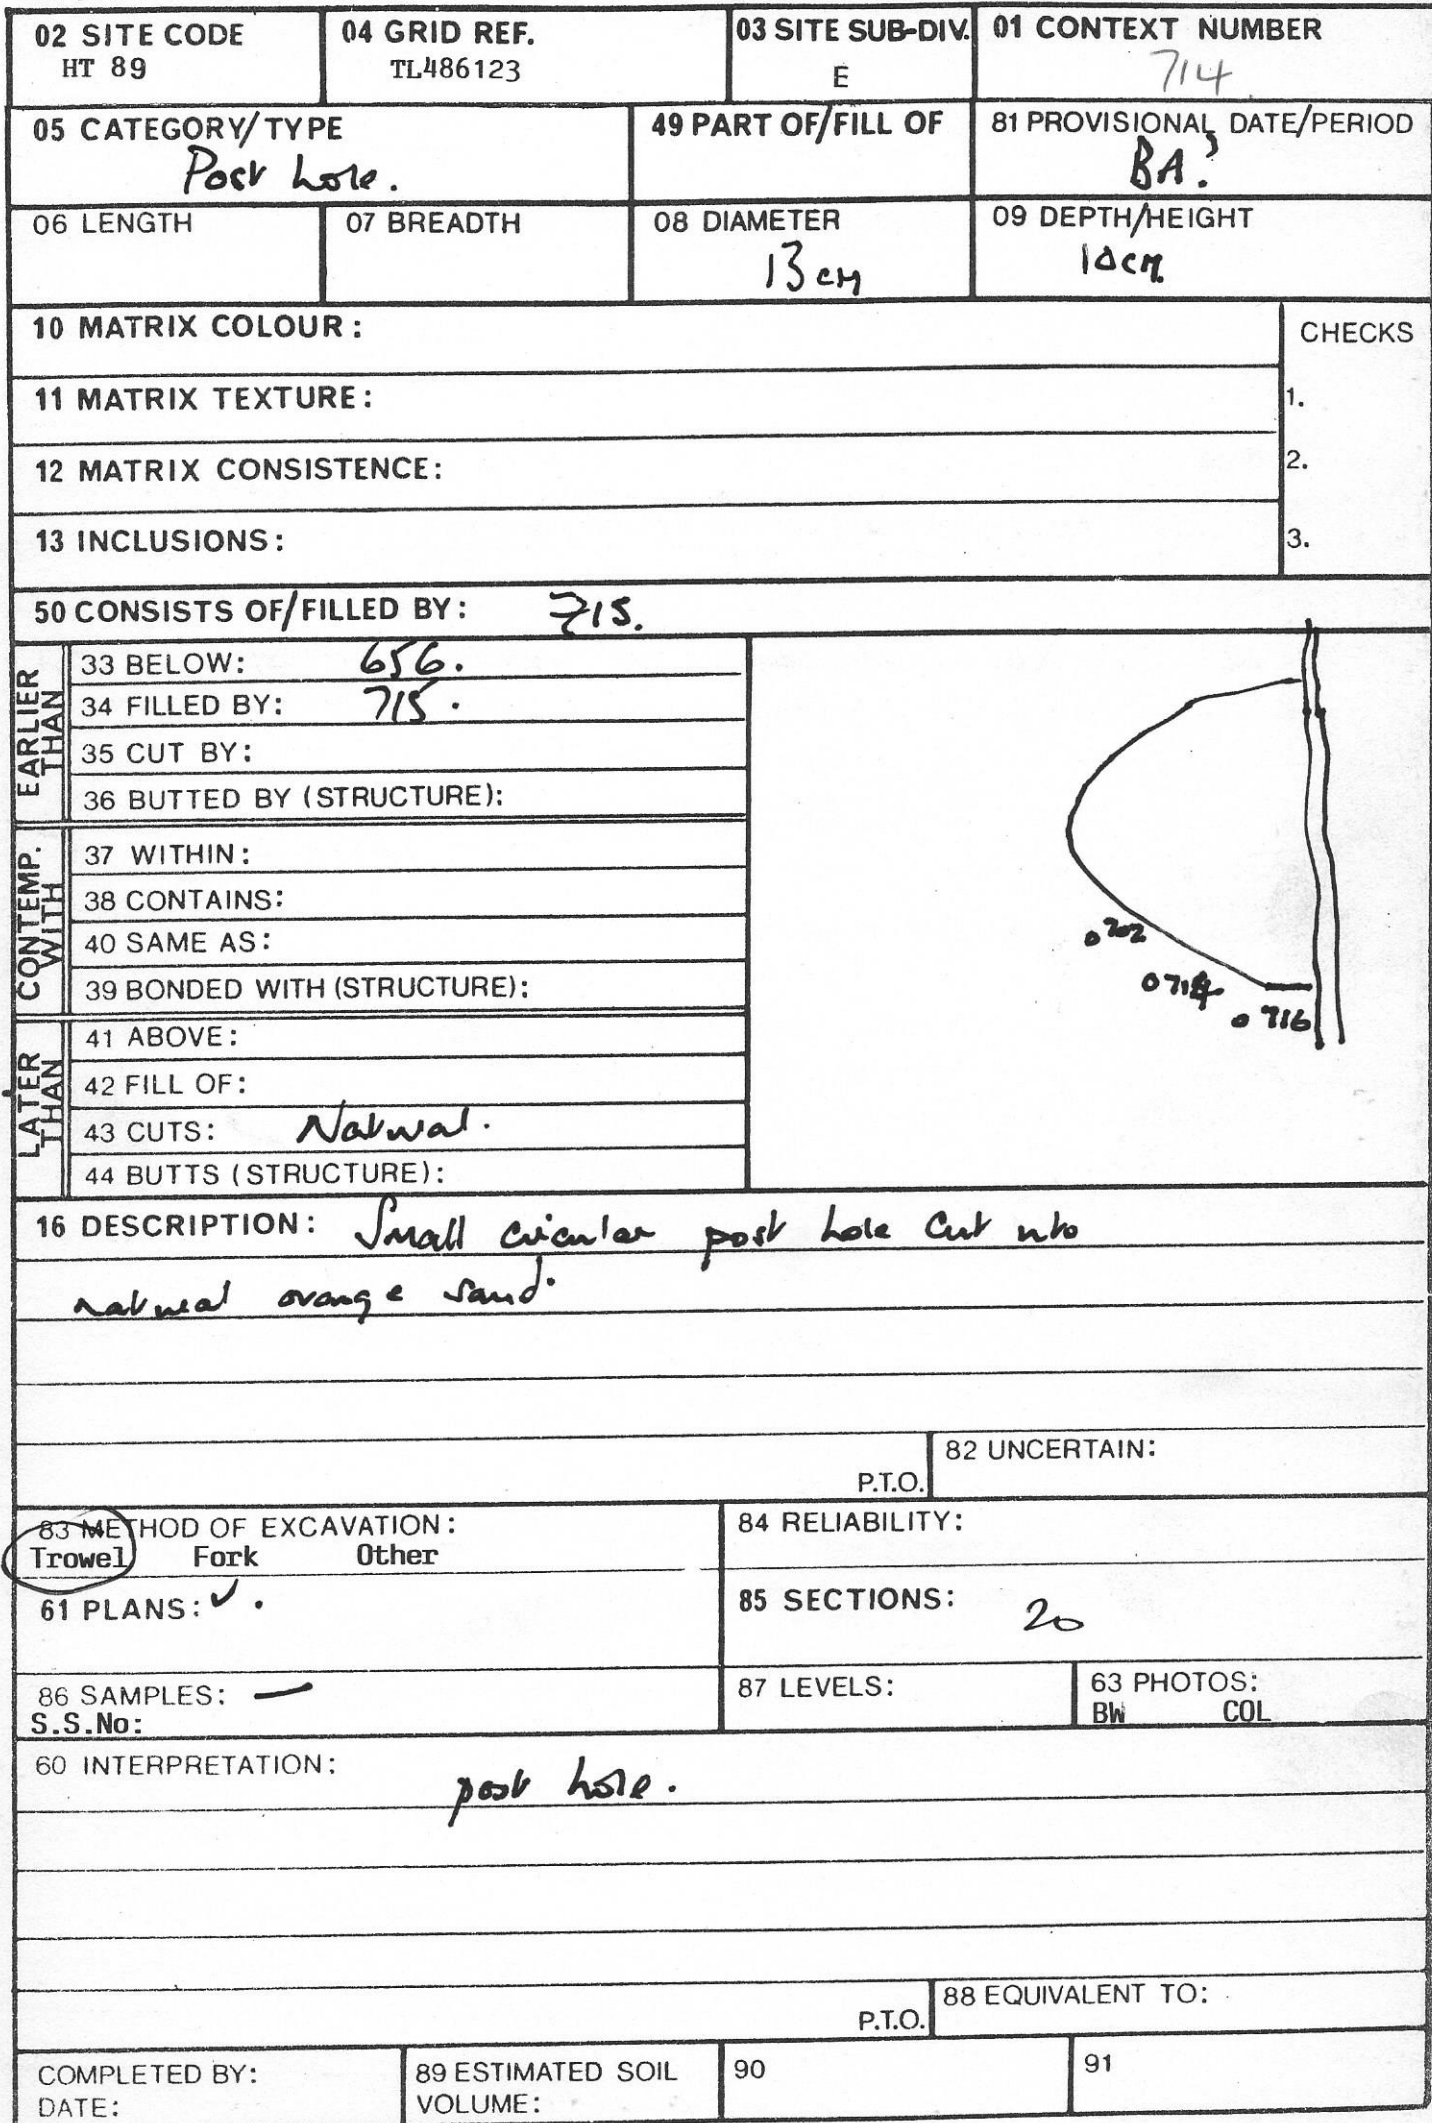 02 SITE CODE
HT 89
04 GRID REF.
TL486123
03 SITE SUB-DIV.
E
01 CONTEXT NUMBER
714
05 CATEGORY/TYPE
Post hole.
49 PART OF/FILL OF
81 PROVISIONAL DATE/PERIOD
BA?
06 LENGTH
07 BREADTH
08 DIAMETER
13 cm
09 DEPTH/HEIGHT
10cm
10 MATRIX COLOUR:
CHECKS
11 MATRIX TEXTURE:
1.
12 MATRIX CONSISTENCE:
2.
13 INCLUSIONS:
3.
50 CONSISTS OF/FILLED BY: 715.
EARLIER THAN
33 BELOW: 656.
34 FILLED BY: 715.
35 CUT BY:
36 BUTTED BY (STRUCTURE):
CONTEMP. WITH
37 WITHIN:
38 CONTAINS:
40 SAME AS:
39 BONDED WITH (STRUCTURE):
LATER THAN
41 ABOVE:
42 FILL OF:
43 CUTS: Natural.
44 BUTTS (STRUCTURE):
702
714
716
16 DESCRIPTION: Small circular post hole cut into
natural orange sand.
P.T.O.
82 UNCERTAIN:
83 METHOD OF EXCAVATION:
Trowel Fork Other
84 RELIABILITY:
61 PLANS: ✓.
85 SECTIONS: 20
86 SAMPLES: —
S.S.No:
87 LEVELS:
63 PHOTOS:
BW COL
60 INTERPRETATION:
post hole.
P.T.O.
88 EQUIVALENT TO:
COMPLETED BY:
DATE:
89 ESTIMATED SOIL
VOLUME:
90
91